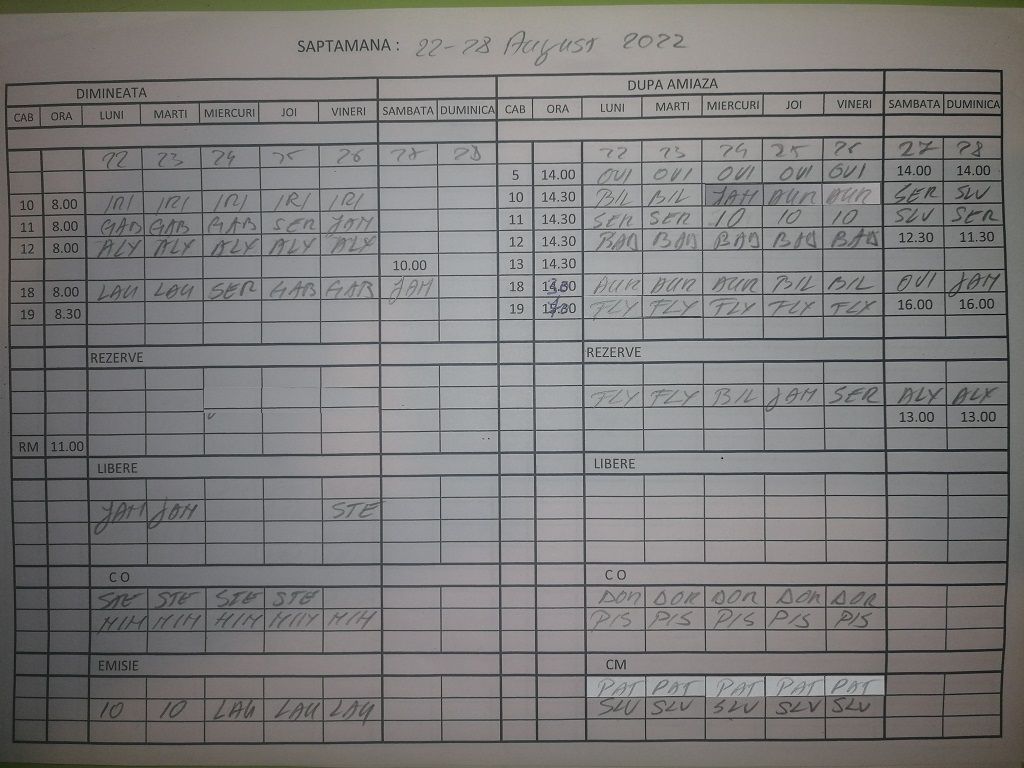 SAPTAMANA : 22-28 August 2022
DIMINEATA DUPA AMIAZA
CAB ORA LUNI MARTI MIERCURI JOI VINERI SAMBATA DUMINICA CAB ORA LUNI MARTI MIERCURI JOI VINERI SAMBATA DUMINICA
22 23 24 25 26 27 28 22 23 24 25 26 27 28
5 14.00 OVI OVI OVI OVI OVI 14.00 14.00
10 8.00 IRI IRI IRI IRI IRI 10 14.30 BIL BIL JAM AUR AUR SER SLV
11 8.00 GAB GAB GAB SER JAM 11 14.30 SER SER 10 10 10 SLV SER
12 8.00 ALY ALY ALY ALY ALY 12 14.30 BAD BAD BAD BAD BAD 12.30 11.30
10.00 13 14.30
18 8.00 LAU LAU SER GAB GAB JAM 18 AUR AUR AUR BIL BIL OVI JAM
19 8.30 19 FLY FLY FLY FLY FLY 16.00 16.00
REZERVE REZERVE
FLY FLY BIL JAM SER ALY ALY
13.00 13.00
RM 11.00
LIBERE LIBERE
JAM JAM STE
C O C O
STE STE STE STE DOR DOR DOR DOR DOR
MIH MIH MIH MIH MIH PIS PIS PIS PIS PIS
EMISIE CM
PAT PAT PAT PAT PAT
10 10 LAU LAU LAU SLV SLV SLV SLV SLV